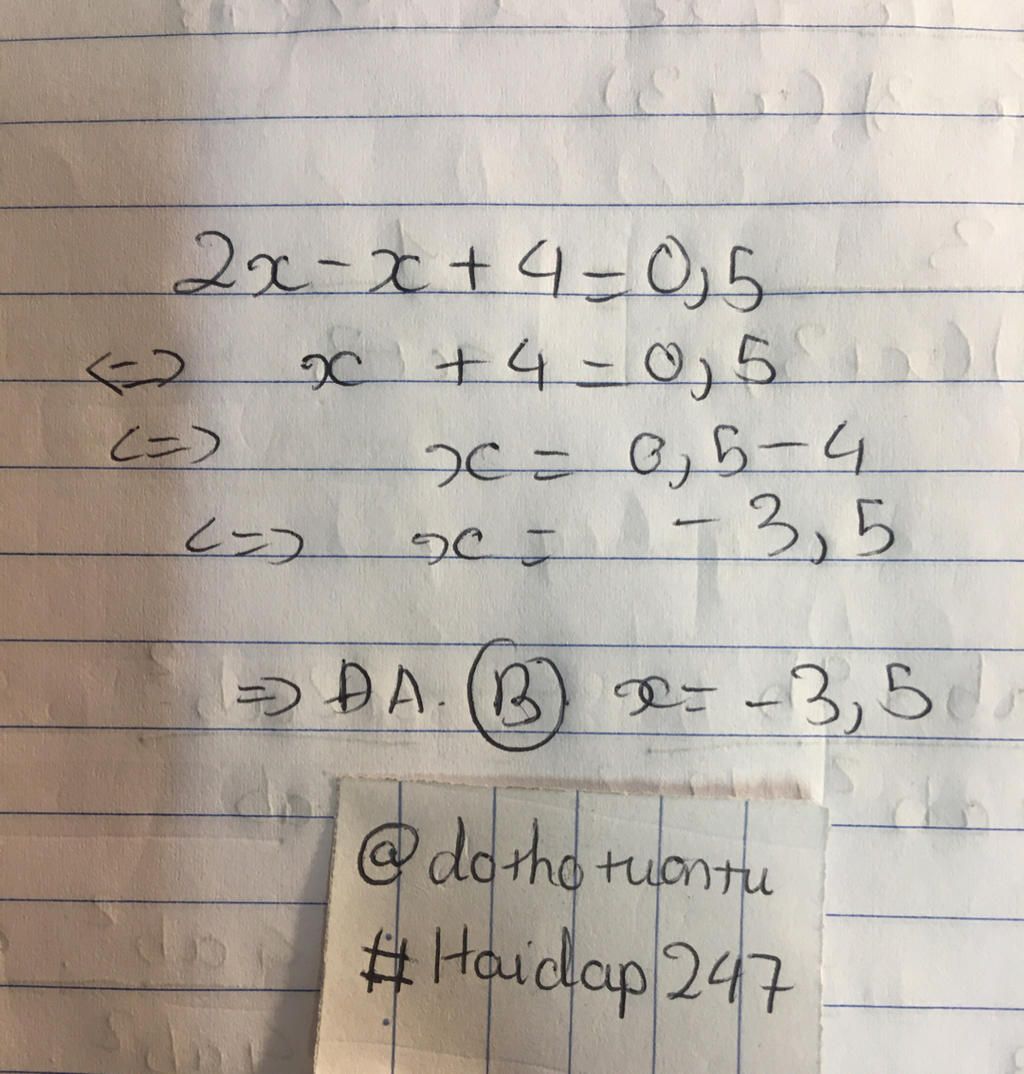 2x - x + 4 = 0,5
<=> x + 4 = 0,5
<=> x = 0,5 - 4
<=> x = - 3,5
=> ĐA. B x = - 3,5
@dothotuontu
#Hoidap247